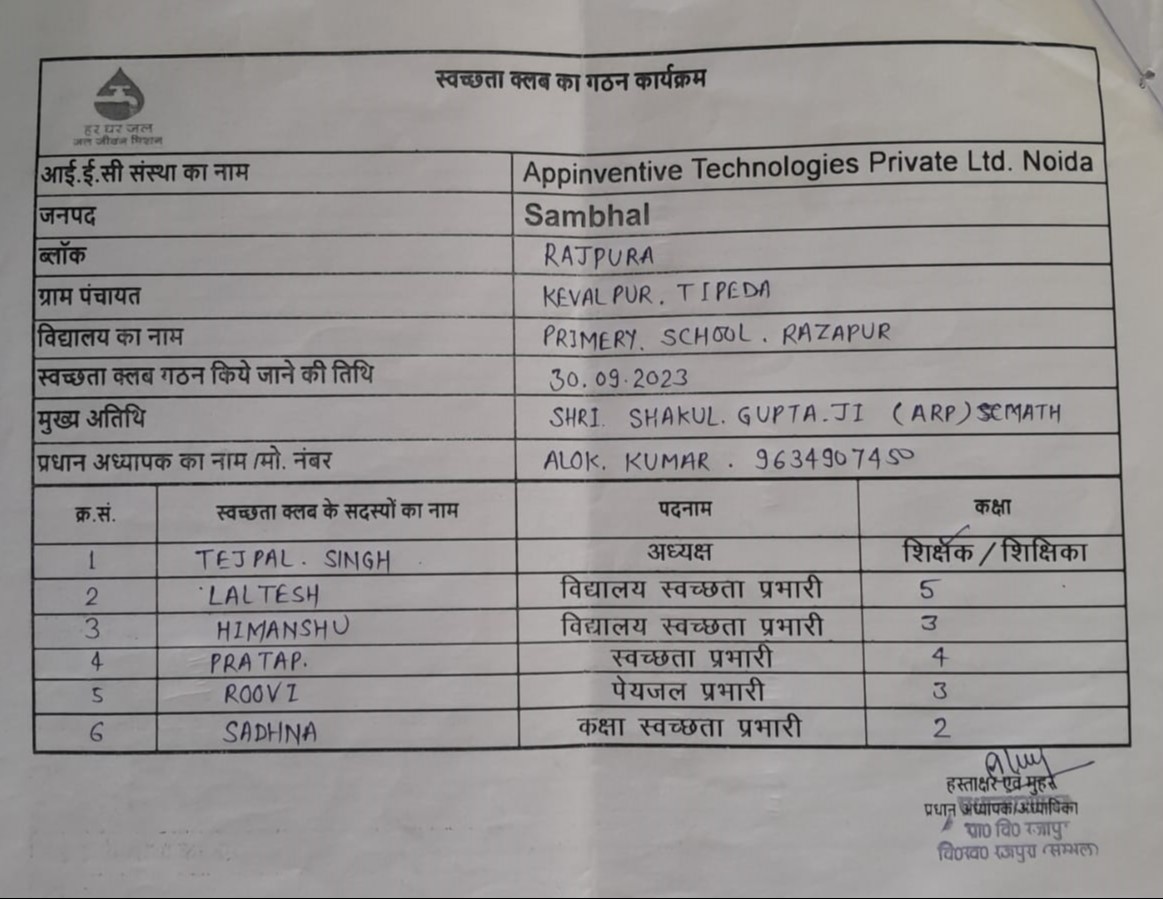 स्वच्छता क्लब का गठन कार्यक्रम
हर घर जल
जल जीवन मिशन
आई.ई.सी संस्था का नाम Appinventive Technologies Private Ltd. Noida
जनपद Sambhal
ब्लॉक RAJPURA
ग्राम पंचायत KEVALPUR. TIPEDA
विद्यालय का नाम PRIMERY. SCHOOL. RAZAPUR
स्वच्छता क्लब गठन किये जाने की तिथि 30.09.2023
मुख्य अतिथि SHRI. SHAKUL. GUPTA. JI (ARP) SEMATH
प्रधान अध्यापक का नाम /मो. नंबर ALOK. KUMAR. 9634907450
क्र.सं. स्वच्छता क्लब के सदस्यों का नाम पदनाम कक्षा
1 TEJPAL. SINGH अध्यक्ष शिक्षक / शिक्षिका
2 LALTESH विद्यालय स्वच्छता प्रभारी 5
3 HIMANSHU विद्यालय स्वच्छता प्रभारी 3
4 PRATAP. स्वच्छता प्रभारी 4
5 ROOVI पेयजल प्रभारी 3
6 SADHNA कक्षा स्वच्छता प्रभारी 2
हस्ताक्षर एवं मुहर
प्रधान अध्यापक/अध्यापिका
प्रा0 वि0
वि0ख0 रजपुरा (सम्भल)